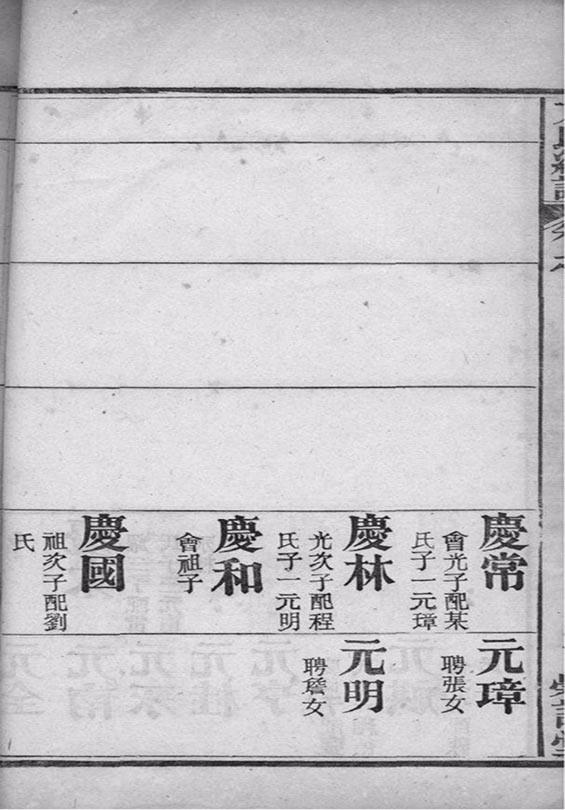 慶常
會光子配某
氏子一元璋
慶林
光次子配程
氏子一元明
慶和
會祖子
慶國
祖次子配劉
氏
元璋
聘張女
元明
聘詹女